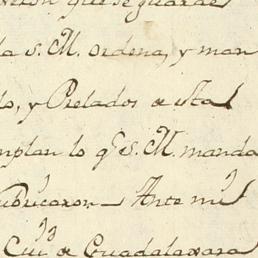 que se guarde
S. M. ordena, y man
lo, y Prelados de esta
mplan lo q̃ S. M. manda
ubricaron Ante mi
Ciud de Guadalaxara